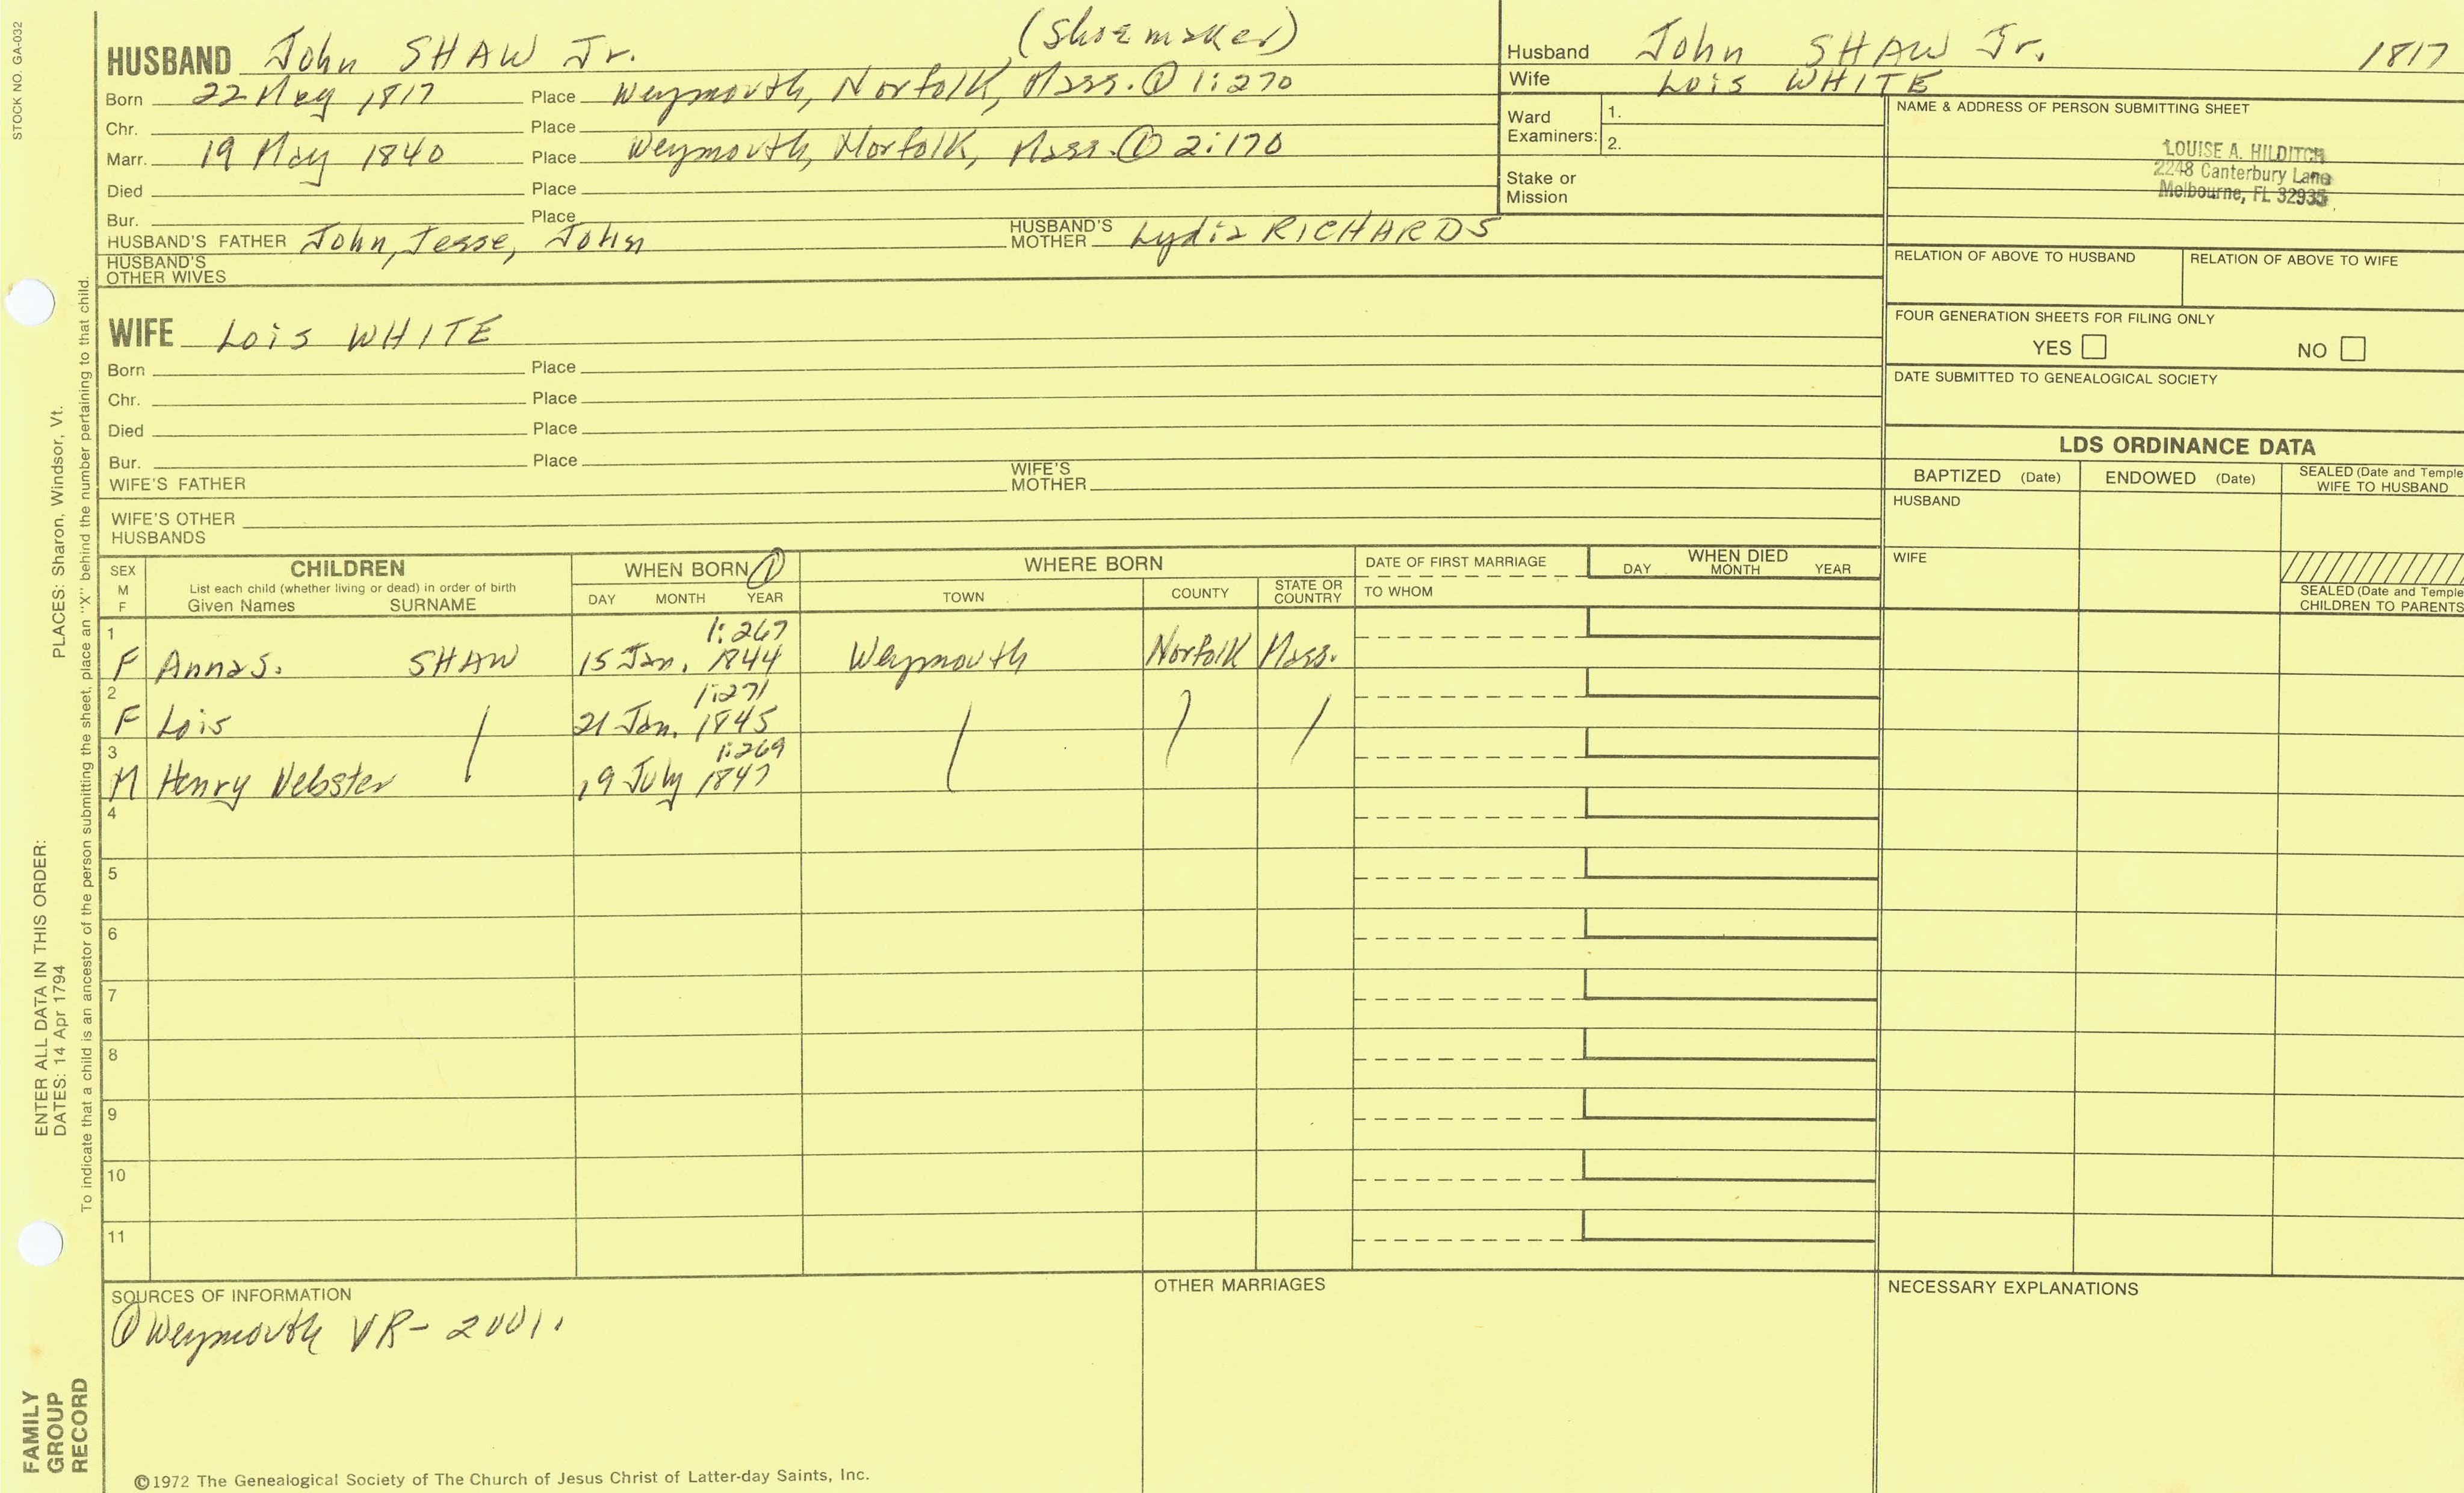 STOCK NO. GA-032
(Shoemaker)
HUSBAND John SHAW Jr.
Born 22 May 1817 Place Weymouth, Norfolk, Mass. ① 1:270
Chr. Place
Marr. 19 May 1840 Place Weymouth, Norfolk, Mass. ① 2:170
Died Place
Bur. Place
HUSBAND'S FATHER John, Jesse, John HUSBAND'S MOTHER Lydia RICHARDS
HUSBAND'S OTHER WIVES
WIFE Lois WHITE
Born Place
Chr. Place
Died Place
Bur. Place
WIFE'S FATHER WIFE'S MOTHER
WIFE'S OTHER HUSBANDS
Husband John SHAW Jr. 1817
Wife Lois WHITE
Ward Examiners: 1.
2.
Stake or Mission
NAME & ADDRESS OF PERSON SUBMITTING SHEET
LOUISE A. HILDITCH
2248 Canterbury Lane
Melbourne, FL 32935
RELATION OF ABOVE TO HUSBAND RELATION OF ABOVE TO WIFE
FOUR GENERATION SHEETS FOR FILING ONLY
YES NO
DATE SUBMITTED TO GENEALOGICAL SOCIETY
LDS ORDINANCE DATA
BAPTIZED (Date) ENDOWED (Date) SEALED (Date and Temple
WIFE TO HUSBAND
HUSBAND
WIFE
SEALED (Date and Temple
CHILDREN TO PARENTS
SEX M F CHILDREN WHEN BORN ① WHERE BORN DATE OF FIRST MARRIAGE WHEN DIED
List each child (whether living or dead) in order of birth
Given Names SURNAME DAY MONTH YEAR TOWN COUNTY STATE OR COUNTRY TO WHOM DAY MONTH YEAR
1 1:267
F Anna S. SHAW 15 Jan. 1844 Weymouth Norfolk Mass.
2 1:271
F Lois 21 Jan. 1845
3 1:269
M Henry Webster 19 July 1847
4
5
6
7
8
9
10
11
SOURCES OF INFORMATION
① Weymouth VR- 2001.
OTHER MARRIAGES
NECESSARY EXPLANATIONS
©1972 The Genealogical Society of The Church of Jesus Christ of Latter-day Saints, Inc.
FAMILY GROUP RECORD
ENTER ALL DATA IN THIS ORDER:
DATES: 14 Apr 1794
PLACES: Sharon, Windsor, Vt.
To indicate that a child is an ancestor of the person submitting the sheet, place an "X" behind the number pertaining to that child.